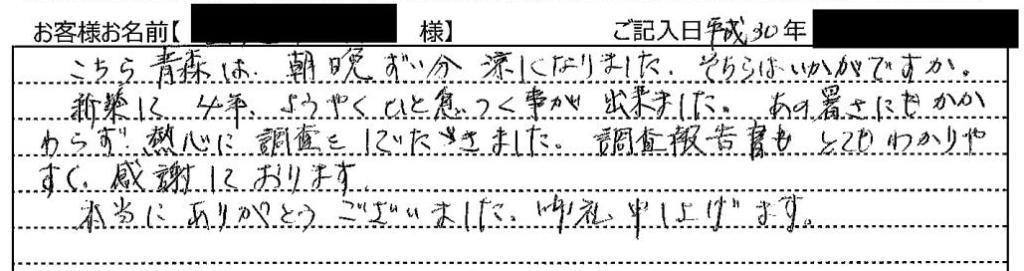 お客様お名前【 様】 ご記入日平成30年
こちら青森は、朝晩ずい分涼しくなりました。そちらはいかがですか。
新築して4年、ようやくひと息つく事が出来ました。あの暑さにもかか
わらず熱心に調査をしていただきました。調査報告書もとてもわかりや
すく、感謝しております。
本当にありがとうございました。御礼申し上げます。